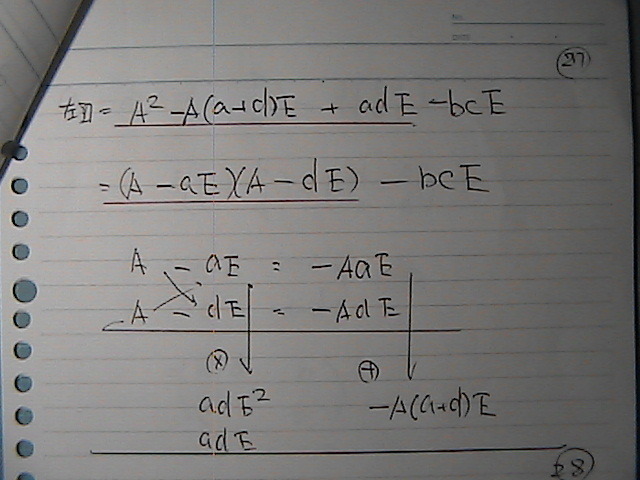 ㉗
左辺 = A² - A(a+d)E + adE - bcE
= (A - aE)(A - dE) - bcE
A - aE = -AaE
A - dE = -AdE
ⓧ ⊕
adE² -A(a+d)E
adE
28